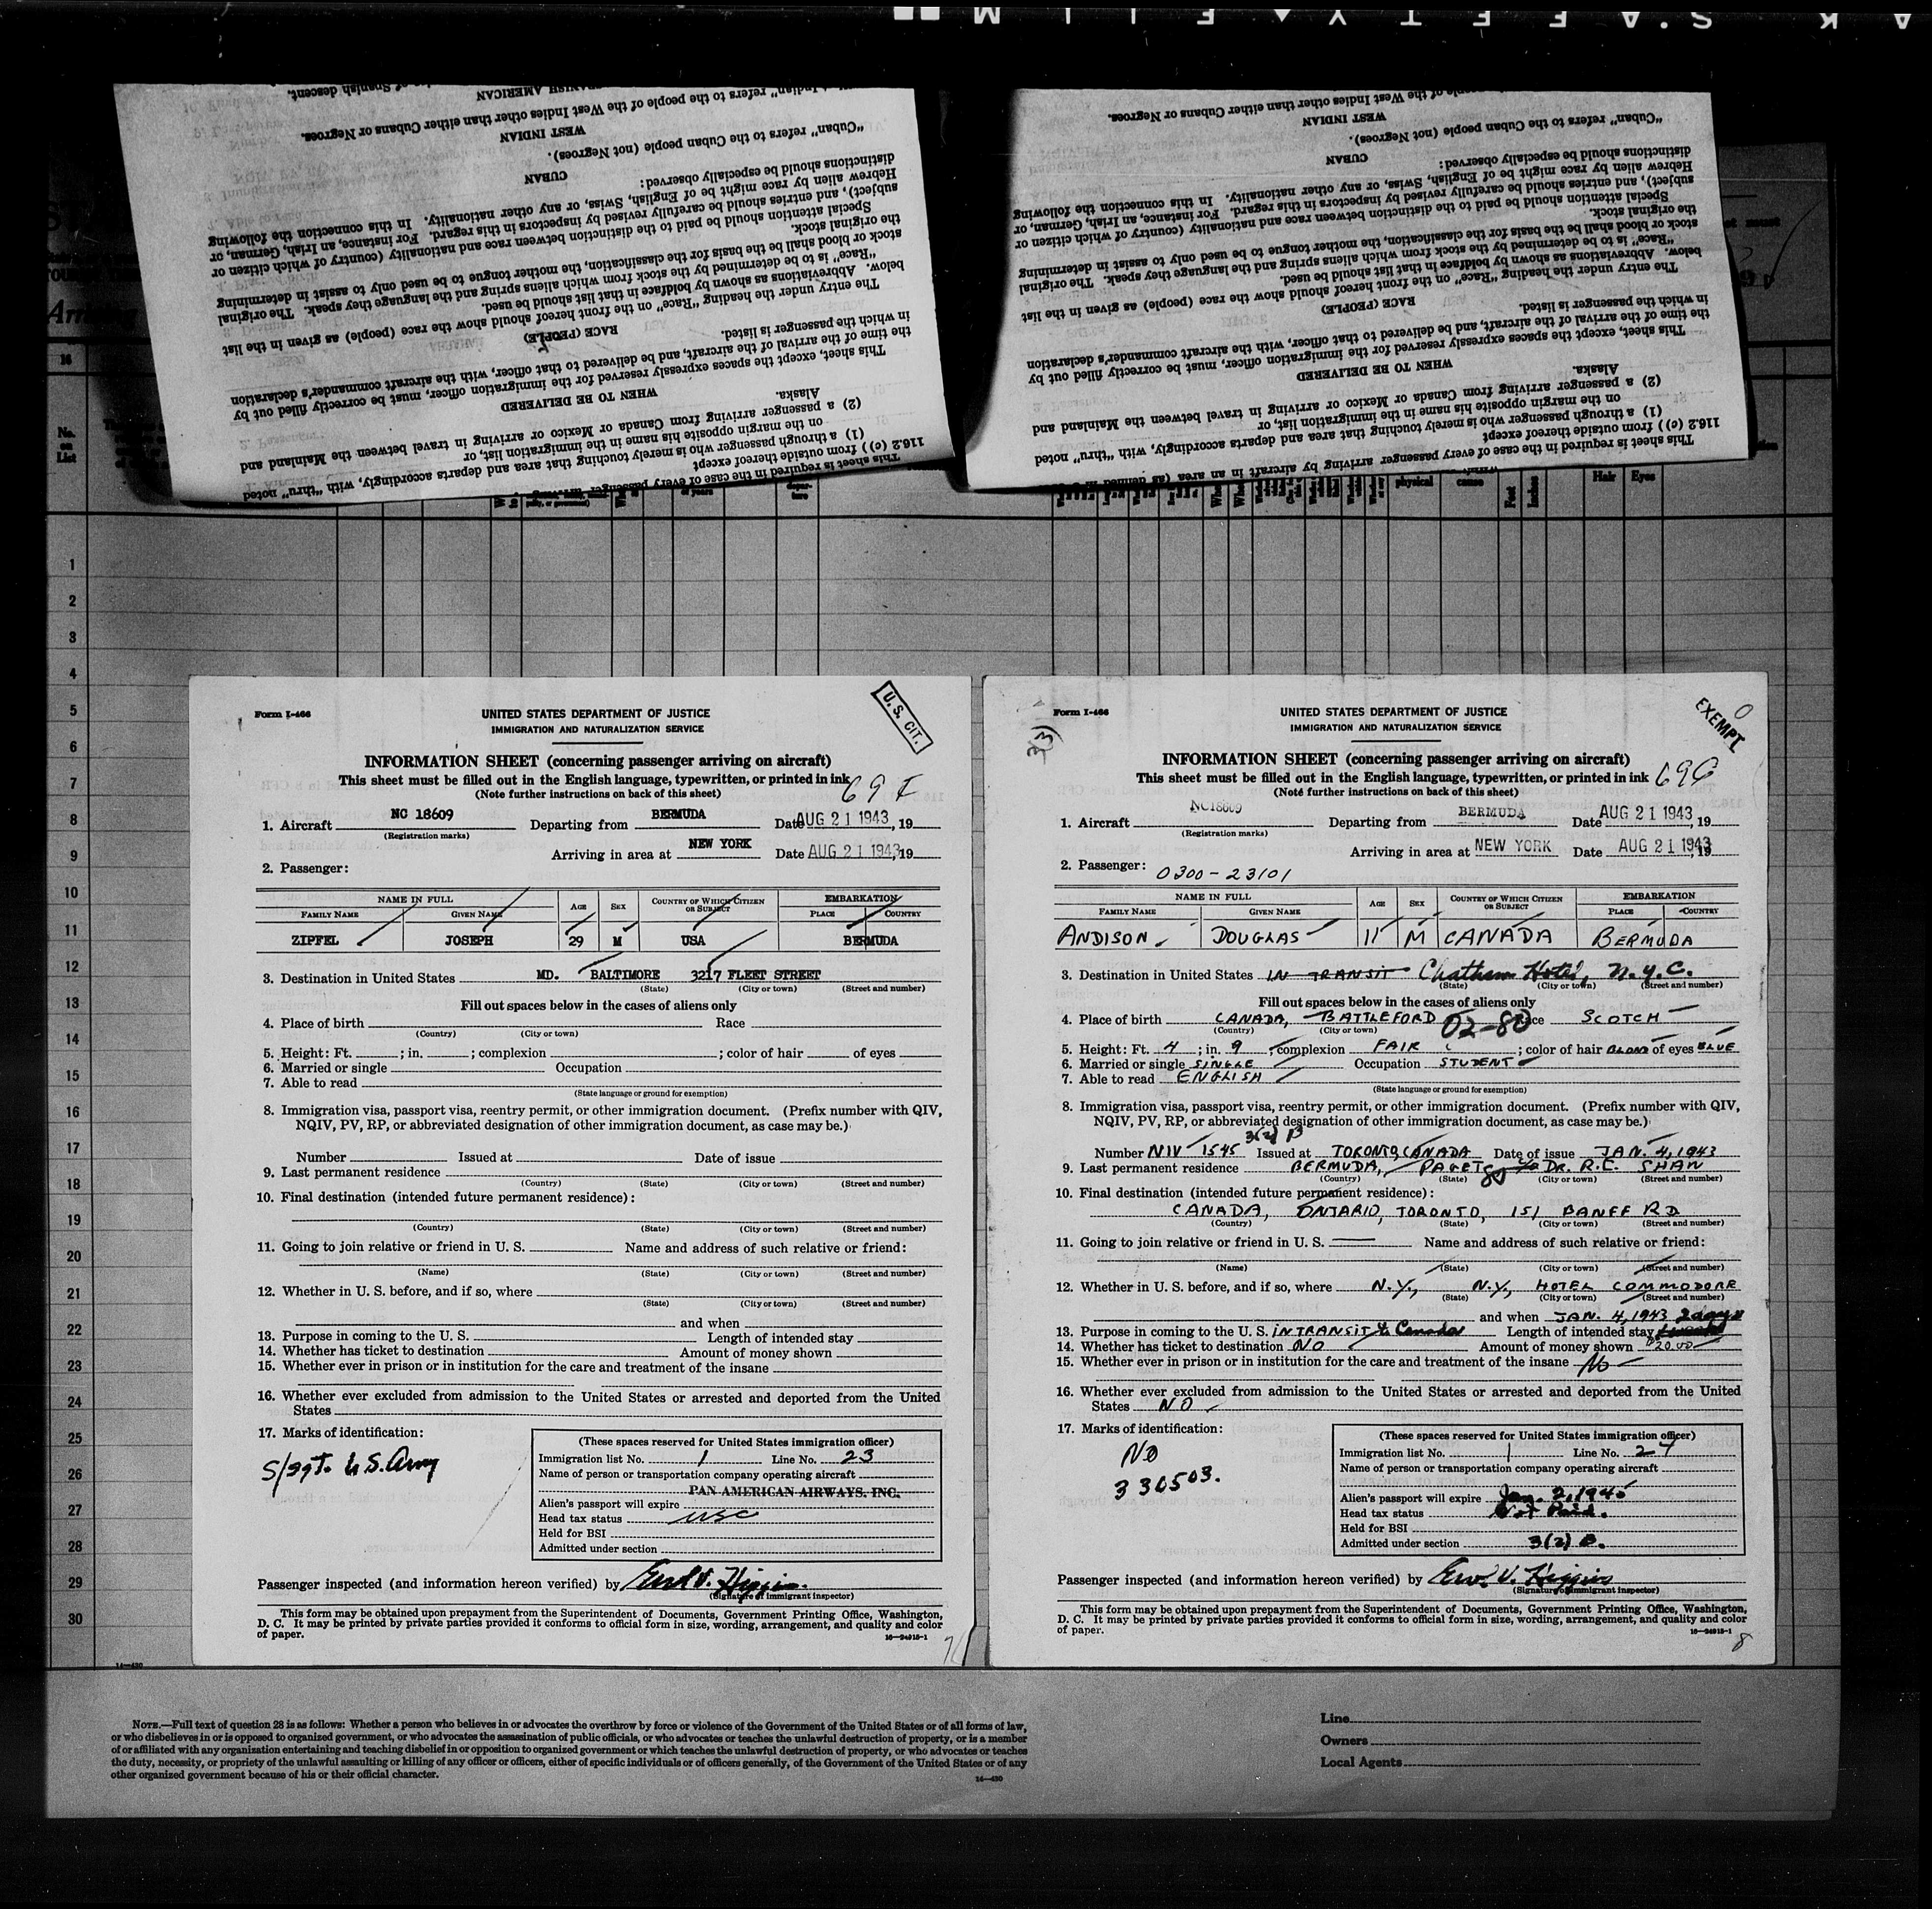 K S.A F E T Y ▲ F I L M
Spanish descent.
SPANISH AMERICAN
Indian" refers to the people of the West Indies other than either Cubans or Negroes.
WEST INDIAN
"Cuban" refers to the Cuban people (not Negroes).
CUBAN
distinctions should be especially observed:
Hebrew alien by race might be of English, Swiss, or any other nationality. In this connection the following
subject), and entries should be carefully revised by inspectors in this regard. For instance, an Irish, German, or
Special attention should be paid to the distinction between race and nationality (country of which citizen or
the original stock.
stock or blood shall be the basis for the classification, the mother tongue to be used only to assist in determining
"Race" is to be determined by the stock from which aliens spring and the language they speak. The original
below. Abbreviations as shown by boldface in that list should be used.
The entry under the heading "Race" on the front hereof should show the race (people) as given in the list
RACE (PEOPLE)
in which the passenger is listed.
the time of the arrival of the aircraft, and be delivered to that officer, with the aircraft commander's declaration
This sheet, except the spaces expressly reserved for the immigration officer, must be correctly filled out by
WHEN TO BE DELIVERED
Alaska.
(2) a passenger arriving from Canada or Mexico or arriving in travel between the Mainland and
on the margin opposite his name in the immigration list, or
(1) a through passenger who is merely touching that area and departs accordingly, with "thru" noted
116.2 (c)) from outside thereof except
This sheet is required in the case of every passenger
people of the West Indies other than either Cubans or Negroes.
WEST INDIAN
"Cuban" refers to the Cuban people (not Negroes).
CUBAN
distinctions should be especially observed:
Hebrew alien by race might be of English, Swiss, or any other nationality. In this connection the following
subject), and entries should be carefully revised by inspectors in this regard. For instance, an Irish, German, or
Special attention should be paid to the distinction between race and nationality (country of which citizen or
the original stock.
stock or blood shall be the basis for the classification, the mother tongue to be used only to assist in determining
"Race" is to be determined by the stock from which aliens spring and the language they speak. The original
below. Abbreviations as shown by boldface in that list should be used.
The entry under the heading "Race" on the front hereof should show the race (people) as given in the list
RACE (PEOPLE)
in which the passenger is listed.
the time of the arrival of the aircraft, and be delivered to that officer, with the aircraft commander's declaration
This sheet, except the spaces expressly reserved for the immigration officer, must be correctly filled out by
WHEN TO BE DELIVERED
Alaska.
(2) a passenger arriving from Canada or Mexico or arriving in travel between the Mainland and
on the margin opposite his name in the immigration list, or
(1) a through passenger who is merely touching that area and departs accordingly, with "thru" noted
116.2 (c)) from outside thereof except
This sheet is required in the case of every passenger arriving by aircraft in an area (as defined in
16
No. on List
physical cause Feet Inches Hair Eyes
1
2
3
4
5
6
7
8
9
10
11
12
13
14
15
16
17
18
19
20
21
22
23
24
25
26
27
28
29
30
Form I-466
U. S. CIT.
UNITED STATES DEPARTMENT OF JUSTICE
IMMIGRATION AND NATURALIZATION SERVICE
INFORMATION SHEET (concerning passenger arriving on aircraft)
This sheet must be filled out in the English language, typewritten, or printed in ink
(Note further instructions on back of this sheet)
1. Aircraft NC 18609 Departing from BERMUDA Date AUG 21 1943, 19
(Registration marks)
Arriving in area at NEW YORK Date AUG 21 1943, 19
2. Passenger:
NAME IN FULL AGE SEX COUNTRY OF WHICH CITIZEN OR SUBJECT EMBARKATION
FAMILY NAME GIVEN NAME PLACE COUNTRY
ZIPFEL JOSEPH 29 M USA BERMUDA
3. Destination in United States MD. BALTIMORE 3217 FLEET STREET
(State) (City or town) (Street and number)
Fill out spaces below in the cases of aliens only
4. Place of birth Race
(Country) (City or town)
5. Height: Ft. ; in. ; complexion ; color of hair of eyes
6. Married or single Occupation
7. Able to read
(State language or ground for exemption)
8. Immigration visa, passport visa, reentry permit, or other immigration document. (Prefix number with QIV,
NQIV, PV, RP, or abbreviated designation of other immigration document, as case may be.)
Number Issued at Date of issue
9. Last permanent residence
(Country) (State) (City or town) (Street and number)
10. Final destination (intended future permanent residence):
(Country) (State) (City or town) (Street and number)
11. Going to join relative or friend in U. S. Name and address of such relative or friend:
(Name) (State) (City or town) (Street and number)
12. Whether in U. S. before, and if so, where
(State) (City or town) (Street and number)
and when
13. Purpose in coming to the U. S. Length of intended stay
14. Whether has ticket to destination Amount of money shown
15. Whether ever in prison or in institution for the care and treatment of the insane
16. Whether ever excluded from admission to the United States or arrested and deported from the United
States
17. Marks of identification:
S/Sgt. U.S. Army
(These spaces reserved for United States immigration officer)
Immigration list No. 1 Line No. 23
Name of person or transportation company operating aircraft
PAN AMERICAN AIRWAYS, INC.
Alien's passport will expire
Head tax status USC
Held for BSI
Admitted under section
Passenger inspected (and information hereon verified) by
(Signature of immigrant inspector)
This form may be obtained upon prepayment from the Superintendent of Documents, Government Printing Office, Washington,
D. C. It may be printed by private parties provided it conforms to official form in size, wording, arrangement, and quality and color
of paper.
16—24915-1
Form I-466
EXEMPT
UNITED STATES DEPARTMENT OF JUSTICE
IMMIGRATION AND NATURALIZATION SERVICE
INFORMATION SHEET (concerning passenger arriving on aircraft)
This sheet must be filled out in the English language, typewritten, or printed in ink
(Note further instructions on back of this sheet)
1. Aircraft NC18609 Departing from BERMUDA Date AUG 21 1943, 19
(Registration marks)
Arriving in area at NEW YORK Date AUG 21 1943, 19
2. Passenger: 0300-23101
NAME IN FULL AGE SEX COUNTRY OF WHICH CITIZEN OR SUBJECT EMBARKATION
FAMILY NAME GIVEN NAME PLACE COUNTRY
ANDISON DOUGLAS 11 M CANADA BERMUDA
3. Destination in United States IN TRANSIT Chatham Hotel, N.Y.C.
(State) (City or town) (Street and number)
Fill out spaces below in the cases of aliens only
4. Place of birth CANADA, BATTLEFORD 02-80 Race SCOTCH
(Country) (City or town)
5. Height: Ft. 4 ; in. 9 ; complexion FAIR ; color of hair BLOND of eyes BLUE
6. Married or single SINGLE Occupation STUDENT
7. Able to read ENGLISH
(State language or ground for exemption)
8. Immigration visa, passport visa, reentry permit, or other immigration document. (Prefix number with QIV,
NQIV, PV, RP, or abbreviated designation of other immigration document, as case may be.)
3(2) B
Number NIV 1545 Issued at TORONTO, CANADA Date of issue JAN. 4, 1943
9. Last permanent residence BERMUDA, PAGET, c/o DR. R.C. SHAW
(Country) (State) (City or town) (Street and number)
10. Final destination (intended future permanent residence):
CANADA, ONTARIO, TORONTO, 151 BANFF RD
(Country) (State) (City or town) (Street and number)
11. Going to join relative or friend in U. S. — Name and address of such relative or friend:
(Name) (State) (City or town) (Street and number)
12. Whether in U. S. before, and if so, where N.Y., N.Y., HOTEL COMMODORE
(State) (City or town) (Street and number)
and when JAN. 4, 1943 2 days
13. Purpose in coming to the U. S. IN TRANSIT to Canada Length of intended stay
14. Whether has ticket to destination NO Amount of money shown $20.00
15. Whether ever in prison or in institution for the care and treatment of the insane No
16. Whether ever excluded from admission to the United States or arrested and deported from the United
States NO
17. Marks of identification:
No
330503.
(These spaces reserved for United States immigration officer)
Immigration list No. 1 Line No. 24
Name of person or transportation company operating aircraft
Alien's passport will expire Jan. 2, 1945
Head tax status Not Paid.
Held for BSI
Admitted under section 3(2) B.
Passenger inspected (and information hereon verified) by
(Signature of immigrant inspector)
This form may be obtained upon prepayment from the Superintendent of Documents, Government Printing Office, Washington,
D. C. It may be printed by private parties provided it conforms to official form in size, wording, arrangement, and quality and color
of paper.
16—24915-1
8
14—430
NOTE.—Full text of question 28 is as follows: Whether a person who believes in or advocates the overthrow by force or violence of the Government of the United States or of all forms of law,
or who disbelieves in or is opposed to organized government, or who advocates the assassination of public officials, or who advocates or teaches the unlawful destruction of property, or is a member
of or affiliated with any organization entertaining and teaching disbelief in or opposition to organized government or which teaches the unlawful destruction of property, or who advocates or teaches
the duty, necessity, or propriety of the unlawful assaulting or killing of any officer or officers, either of specific individuals or of officers generally, of the Government of the United States or of any
other organized government because of his or their official character.
14—430
Line
Owners
Local Agents